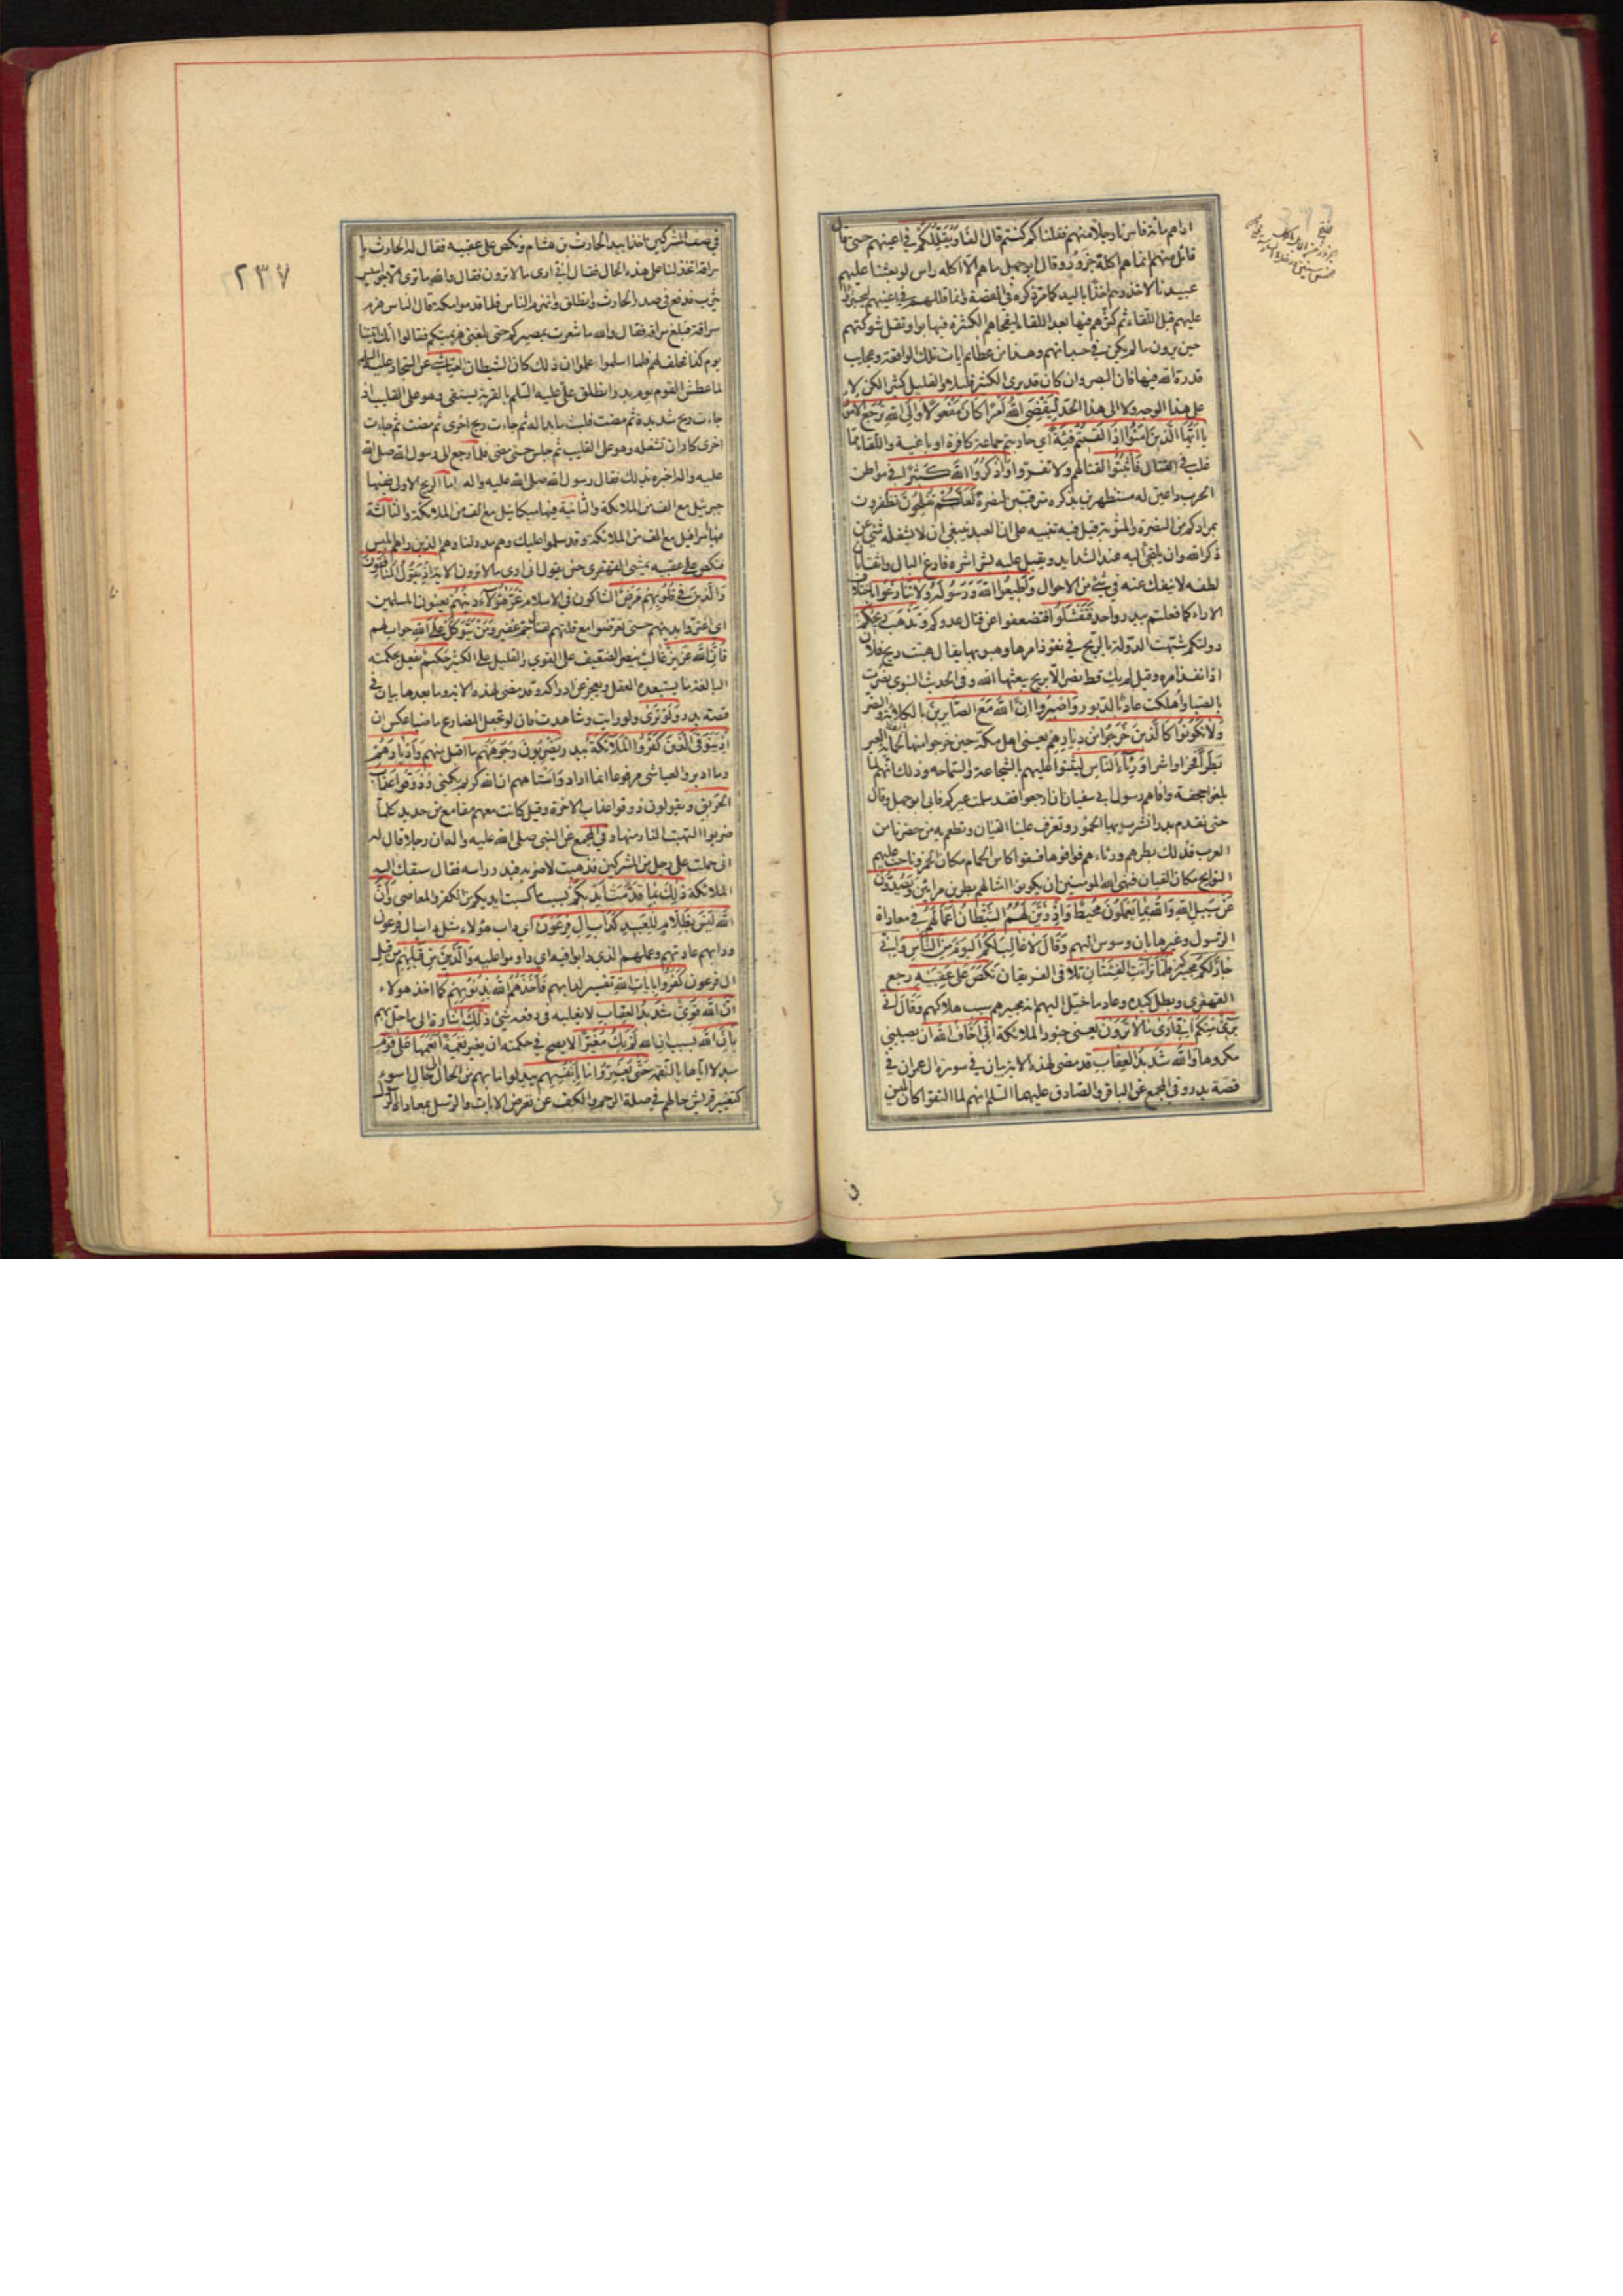 اراهم مأتة فاسرنا رجلا منهم فقلنا كم كنتم قال الفا ويقللكم في اعينهم حتى قال
قائل منهم انما هم اكلة جزور وقال ابو جهل ما هم الا اكلة راس لو بعثنا عليهم
عبيدنا لاخذوهم اخذا باليد كما مر ذكره في القصة وانما قللهم في اعينهم ليجترؤا
عليهم قبل اللقاء ثم كثرهم فيها بعد اللقاء ليفجأهم الكثرة فيهابوا وتفل شوكتهم
حين يرون ما لم يكن في حسبانهم وهذا من عظايم ايات تلك الواقعة وعجايب
قدرة الله فيها فان البصر وان كان قد يرى الكثير قليلا والقليل كثيرا لكن لا
على هذا الوجه ولا الى هذا الحد ليقضي الله امرا كان مفعولا والى الله ترجع الامور
يا ايها الذين امنوا اذا لقيتم فئة اي حاربتم جماعة كافرة او باغية واللقاء مما
غلب في القتال فاثبتوا لقتالهم ولا تفروا واذكروا الله كثيرا في مواطن
الحرب داعين له مستظهرين بذكره مترقبين لنصره لعلكم تفلحون تظفرون
بمرادكم من النصرة والمثوبة قيل فيه تنبيه على ان العبد ينبغي ان لا يشغله شئ عن
ذكر الله وان يلتجئ اليه عند الشدايد ويقبل عليه بشراشره فارغ البال واثقا بان
لطفه لا ينفك عنه في شئ من الاحوال واطيعوا الله ورسوله ولا تنازعوا باختلاف
الاراء كما فعلتم ببدر واحد فتفشلوا فتضعفوا عن قتال عدوكم وتذهب ريحكم
دولتكم شبهت الدولة بالريح في نفوذ امرها وهبوبها يقال هبت ريح فلان
اذا نفذ امره وقيل لم يك قط نصر الا بريح يبعثها الله وفي الحديث النبوي نصرت
بالصبا واهلكت عاد بالدبور واصبروا ان الله مع الصابرين بالكلاءة والنصر
ولا تكونوا كالذين خرجوا من ديارهم يعني اهل مكة حين خرجوا منها لحماية العير
بطرا فخرا واشرا ورئاء الناس ليثنوا عليهم بالشجاعة والسماحة وذلك انهم لما
بلغوا جحفة وافاهم رسول ابي سفيان ان ارجعوا فقد سلمت عيركم فابى ابو جهل وقال
حتى نقدم بدرا نشرب بها الخمور وتعزف علينا القيان ونطعم بها من حضرنا من
العرب فذلك بطرهم ورئاءهم فوافوها فسقوا كاس الحمام مكان الخمر وناحت عليهم
النوايح مكان القيان فنهى الله المؤمنين ان يكونوا امثالهم بطرين مرائين ويصدون
عن سبيل الله والله بما يعملون محيط واذ زين لهم الشيطان اعمالهم في معاداة
الرسول وغيرها بان وسوس اليهم وقال لا غالب لكم اليوم من الناس واني
جار لكم مجيركم فلما ترآئت الفئتان تلاقى الفريقان نكص على عقبيه رجع
القهقرى وبطل كيده وعاد ما خيل اليهم انه مجيرهم سبب هلاكهم وقال اني
برئ منكم اني ارى ما لا ترون يعني جنود الملائكة اني اخاف الله ان يصيبني
مكروها والله شديد العقاب قد مضى لهذه الاية بيان في سورة ال عمران في
قصة بدر وفي المجمع عن الباقر والصادق عليهما السلم انهم لما التقوا كان ابليس
في صف المشركين اخذا بيد الحارث بن هشام ونكص على عقبيه فقال له الحارث يا
سراقة اتخذلنا على هذه الحال فقال اني ارى ما لا ترون فقال والله ما ترى الا جواسيس
يثرب فدفع في صدر الحارث وانطلق وانهزم الناس فلما قدموا مكة قال الناس هزم
سراقة فبلغ سراقة فقال والله ما شعرت بمصيركم حتى بلغني هزيمتكم فقالوا انك اتيتنا
يوم كذا فحلف لهم فلما اسلموا علموا ان ذلك كان الشيطان العياشي عن السجاد عليه السلم
لما عطش القوم يوم بدر انطلق علي عليه السلم بالقربة يستقي وهو على القليب اذ
جاءت ريح شديدة ثم مضت فلبث ما بدا له ثم جاءت ريح اخرى ثم مضت ثم جاءت
اخرى كاد ان تشغله وهو على القليب ثم جلس حتى مضى فلما رجع الى رسول الله صلى الله
عليه واله اخبره بذلك فقال رسول الله صلى الله عليه واله اما الريح الاولى ففيها
جبرئيل مع الف من الملائكة والثانية فيها ميكائيل مع الف من الملائكة والثالثة
فيها اسرافيل مع الف من الملائكة وقد سلموا عليك وهم مدد لنا وهم الذين راهم ابليس
فنكص على عقبيه يمشي القهقرى حتى يقول اني ارى ما لا ترون الاية اذ يقول المنافقون
والذين في قلوبهم مرض الشاكون في الاسلام غر هؤلاء دينهم يعنون المسلمين
اي اغتروا بدينهم حتى تعرضوا مع قلتهم لقتال جم غفير ومن يتوكل على الله جواب لهم
فان الله عزيز غالب ينصر الضعيف على القوي والقليل على الكثير حكيم يفعل بحكمته
البالغة ما يستبعده العقل ويعجز عن ادراكه وقد مضى لهذه الاية وما بعدها بيان في
قصة بدر ولو ترى ولو رايت وشاهدت فان لو تجعل المضارع ماضيا عكس ان
اذ يتوفى الذين كفروا الملائكة ببدر يضربون وجوههم ما اقبل منهم وادبارهم
وما ادبر والعياشي مرفوعا انما اراد واستاههم ان الله كريم يكني وذوقوا عذاب
الحريق ويقولون ذوقوا عذاب الاخرة وقيل كانت معهم مقامع من حديد كلما
ضربوا التهبت النار منها وفي المجمع عن النبي صلى الله عليه واله ان رجلا قال له
اني حملت على رجل من المشركين فذهبت لاضربه فبدر راسه فقال سبقك اليه
الملائكة ذلك بما قدمت ايديكم بسبب ما كسبت ايديكم من الكفر والمعاصي وان
الله ليس بظلام للعبيد كداب ال فرعون اي داب هؤلاء مثل داب ال فرعون
ودابهم عادتهم وعملهم الذي دابوا فيه اي داوموا عليه والذين من قبلهم من قبل
ال فرعون كفروا بايات الله تفسير لدابهم فاخذهم الله بذنوبهم كما اخذ هولاء
ان الله قوي شديد العقاب لا يغلبه في دفعه شئ ذلك اشارة الى ما حل بهم
بان الله بسبب ان الله لم يك مغيرا لا يصح في حكمته ان يغير نعمة انعمها على قوم
مبدلا اياها بالنقمة حتى يغيروا ما بانفسهم يبدلوا ما بهم من الحال الى حال اسوء
كتغيير قريش حالهم في صلة الرحم والكف عن تعرض الايات والرسل بمعاداة الرسول
٢٣٧